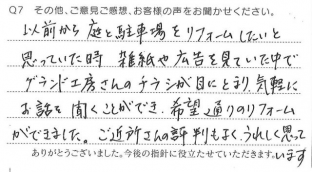 Q7 その他、ご意見ご感想、お客様の声をお聞かせください。
以前から庭と駐車場をリフォームしたいと
思っていた時 雑紙や広告を見ていた中で
グランド工房さんのチラシが目にとまり、気軽に
お話を聞くことができ、希望通りのリフォーム
ができました。ご近所さんの評判もよく、うれしく思って
います
ありがとうございました。今後の指針に役立たせていただきます。